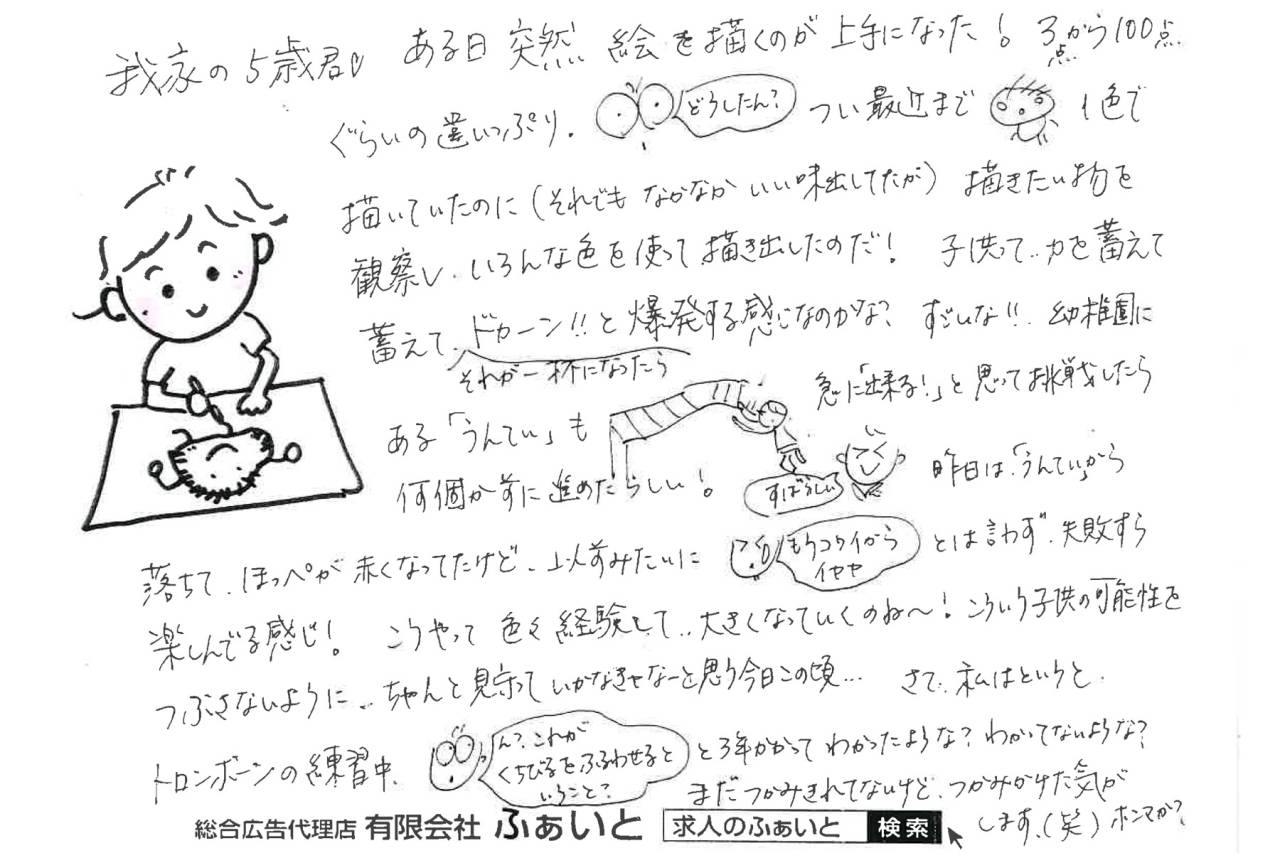 我家の5歳君♡ ある日突然 絵を描くのが上手になった! 3点から100点
ぐらいの違いっぷり。 どうしたん? つい最近まで 1色で
描いていたのに(それでもなかなかいい味出してたが) 描きたい物を
観察し、いろんな色を使って描き出したのだ! 子供って‥力を蓄えて
蓄えて、ドカーン!!と爆発する感じなのかな? すごいな!! 幼稚園に
それが一杯になったら
ある「うんてい」も 急に「出来る!」と思ってお挑戦したら
何個か前に進めたらしい! すばらしい 昨日は、「うんてい」から
落ちて、ほっぺが赤くなってたけど、以前みたいに もうコワイから イヤヤ とは言わず、失敗すら
楽しんでる感じ! こうやって 色々経験して‥大きくなっていくのね〜! こういう子供の可能性を
つぶさないように‥ちゃんと見守っていかなきゃなーと思う今日この頃… さて、私はというと、
トロンボーンの練習中、 ん?これが くちびるをふるわせると いうこと? と3年かかって わかったような? わかってないような?
まだつかみきれてないけど、つかみかけた気が
します、(笑) ホンマか?
総合広告代理店 有限会社 ふぁいと 求人のふぁいと 検索